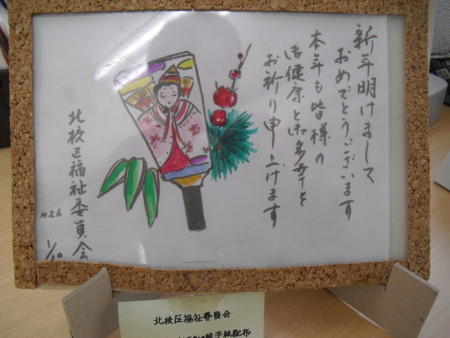 新年明けまして
おめでとうございます
本年も皆様の
御健康と御多幸を
お祈り申し上げます
北校区福祉委員会
H26
1/10
北校区福祉委員会
手紙配布